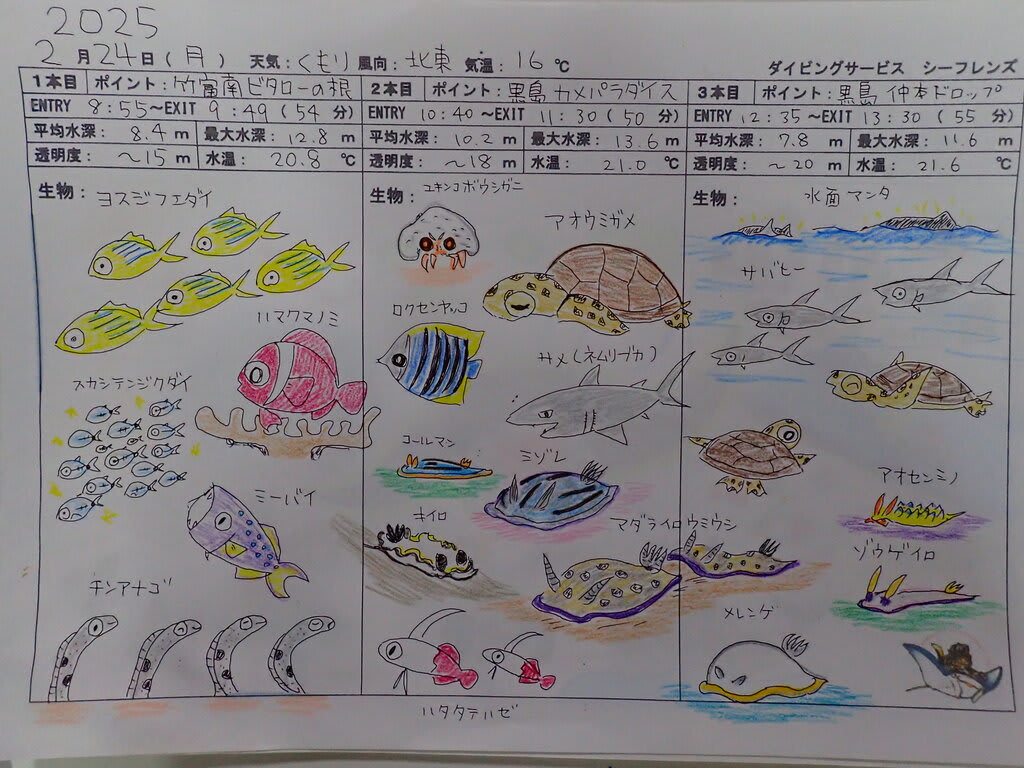 2025
2月24日(月) 天気:くもり 風向:北東 気温:16℃
ダイビングサービス シーフレンズ
1本目 ポイント:竹富南ビタローの根
ENTRY 8:55~EXIT 9:49(54分)
平均水深: 8.4 m 最大水深: 12.8 m
透明度: ~15 m 水温: 20.8 ℃
生物:
ヨスジフエダイ
ハマクマノミ
スカシテンジクダイ
ミーバイ
チンアナゴ
2本目 ポイント:黒島カメパラダイス
ENTRY 10:40~EXIT 11:30(50分)
平均水深: 10.2 m 最大水深: 13.6 m
透明度: ~18 m 水温: 21.0 ℃
生物:
ユキンコボウシガニ
アオウミガメ
ロクセンヤッコ
サメ(ネムリブカ)
コールマン
ミゾレ
キイロ
マダライロウミウシ
ハタタテハゼ
3本目 ポイント:黒島仲本ドロップ
ENTRY 12:35~EXIT 13:30(55分)
平均水深: 7.8 m 最大水深: 11.6 m
透明度: ~20 m 水温: 21.6 ℃
生物:
水面マンタ
サバヒー
アオセンミノ
ゾウゲイロ
メレンゲ